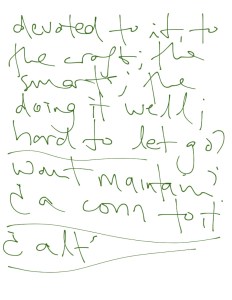 devoted to it, to
the craft; the
smarts; the
doing it well;
hard to let go?
want maintain;
¿ a conn to it
¿ alt